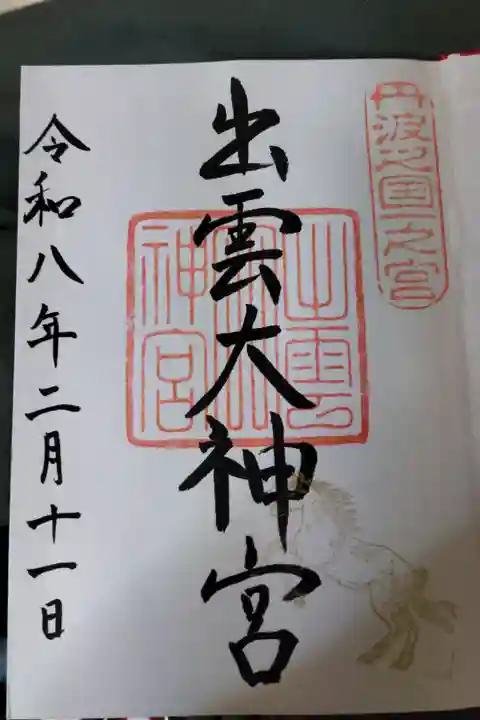 丹波之国一之宮
出雲大神宮
出雲大神宮
令和八年二月十一日